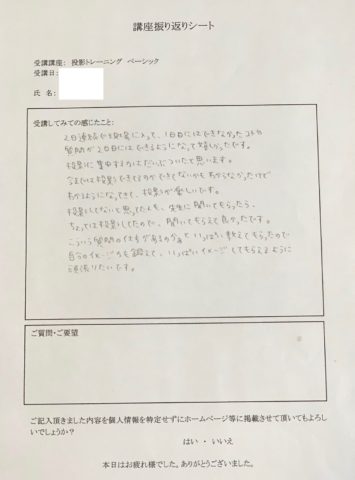 講座振り返りシート
受講講座： 投影トレーニング ベーシック
受講日：
氏 名：
受講してみての感じたこと：
2日連続で によって、1日目にはできなかったコトや
質問が2日目にはできるようになって嬉しかったです。
投影に集中するのはだいぶついたと思います。
今までは投影できてるのかできてないかも わからなかったけど
わかるようになってきて、投影が楽しいです。
投影してないと思ってたんも、先生に聞いてもらったら、
ちょっとは投影してたので、聞いてもらえて良かったです。
こういう質問の仕方があるのかぁと いっぱい教えてもらったので
自分のイメージ も鍛えて、いっぱいイメージしてもらえるように
頑張りたいです。
ご質問・ご要望
ご記入頂きました内容を個人情報を特定せずにホームページ等に掲載させて頂いてもよろし
いでしょうか？
はい ・ いいえ
本日はお疲れ様でした。ありがとうございました。